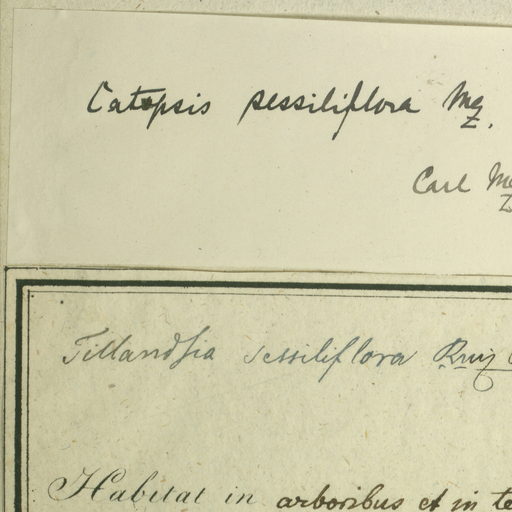 Catopsis sessiliflora Mez.
Carl Me
Tillandsia sessiliflora Ruiz
Habitat in arboribus et in te